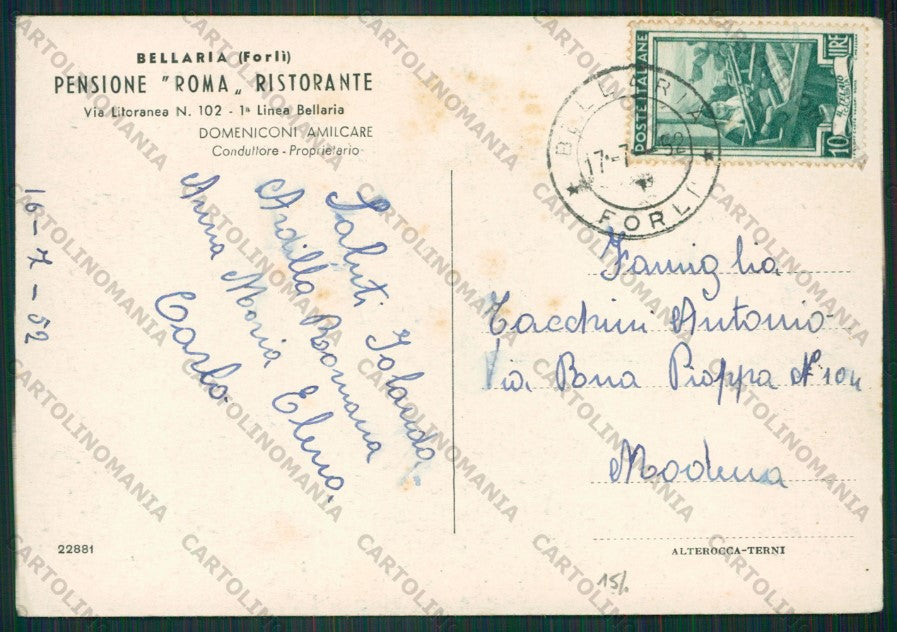 BELLARIA (Forlì)
PENSIONE "ROMA„ RISTORANTE
Via Litoranea N. 102 - 1ª Linea Bellaria
DOMENICONI AMILCARE
Conduttore - Proprietario
16-7-52
Saluti Jolanda.
Ardilla Romana
Anna Maria Elena.
Carlo.
22881
POSTE ITALIANE
10 LIRE
BELLARIA
17-7-52
FORLI
Famiglia
Tacchini Antonio
Via Bona Pioppa N 104
Modena
ALTEROCCA-TERNI
15/.
CARTOLINOMANIA